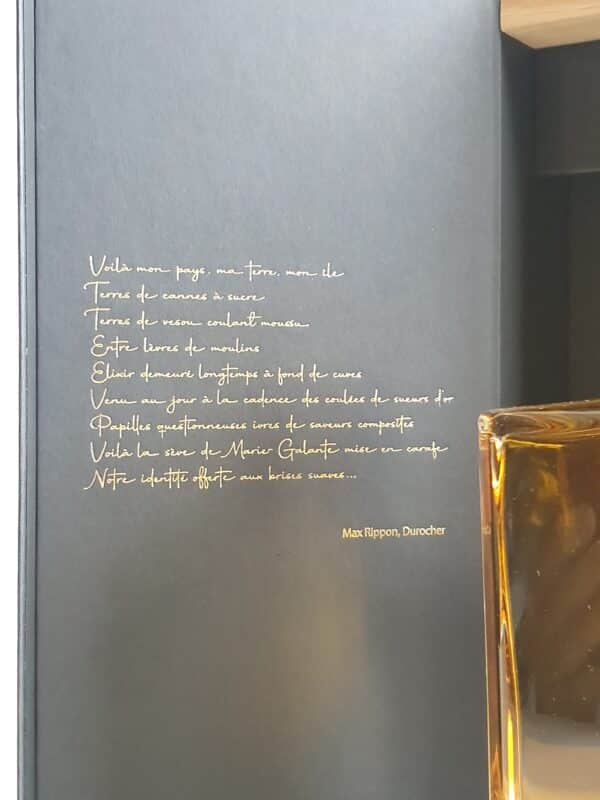 Voilà mon pays, ma terre, mon ile
Terres de cannes à sucre
Terres de vesou coulant moussu
Entre lèvres de moulins
Elixir demeuré longtemps à fond de cuves
Venu au jour à la cadence des coulées de sueurs d'or
Papilles questionneuses ivres de saveurs composites
Voilà la sève de Marie Galante mise en carafe
Notre identité offerte aux brises suaves...
Max Rippon, Durocher